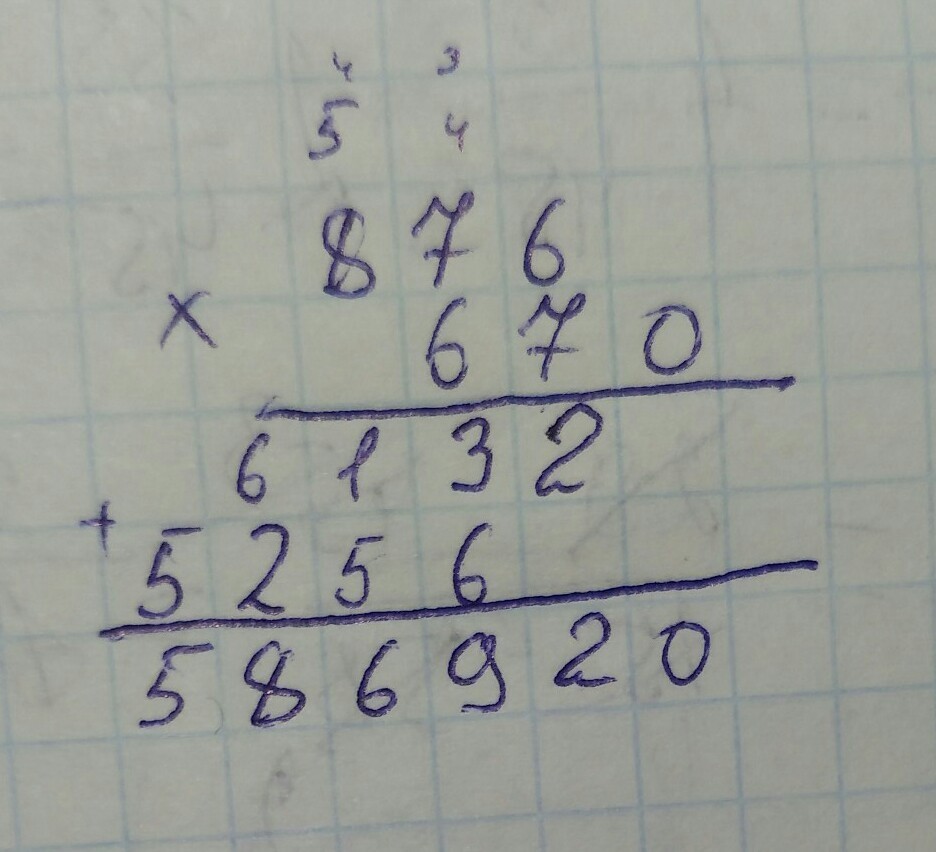 4 3
5 4
876
× 670
6132
+ 5256
586920